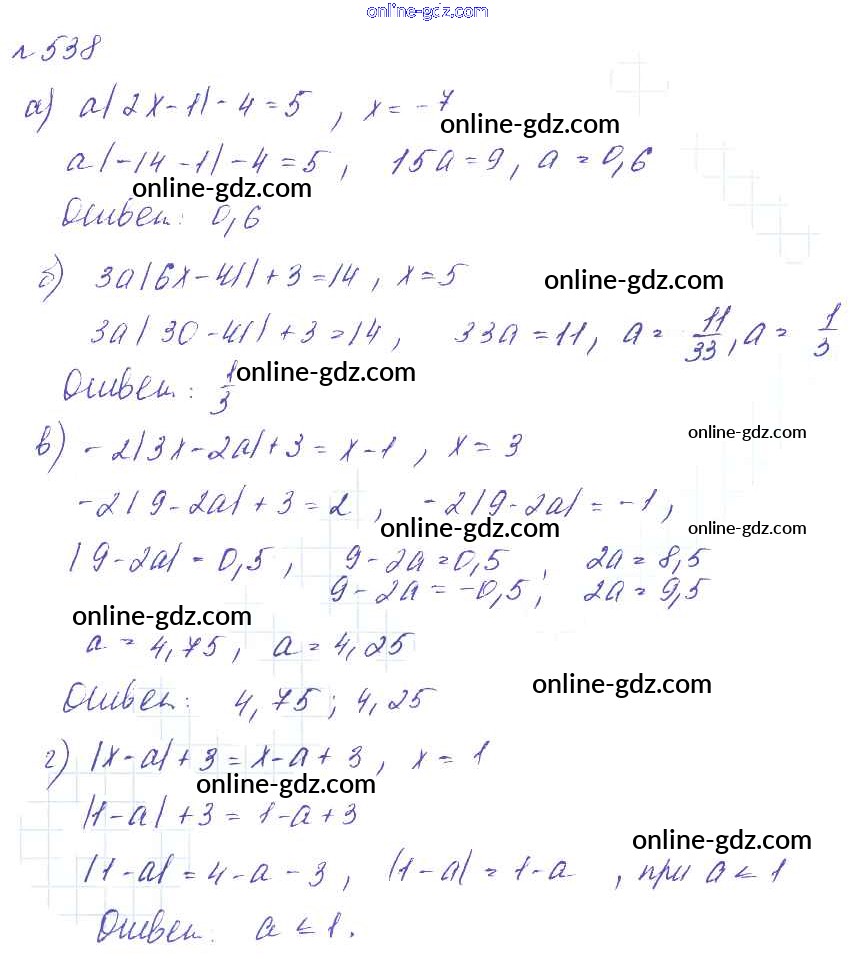 online-gdz.com
№538
а) a|2x-1|-4=5, x=-7
online-gdz.com
a|-14-1|-4=5, 15a=9, a=0,6
online-gdz.com
Ответ: 0,6
б) 3a|6x-41|+3=14, x=5
online-gdz.com
3a|30-41|+3=14, 33a=11, a=11/33, a=1/3
Ответ: 1/3
online-gdz.com
в) -2|3x-2a|+3=x-1, x=3
online-gdz.com
-2|9-2a|+3=2, -2|9-2a|=-1,
online-gdz.com
online-gdz.com
|9-2a|=0,5, 9-2a=0,5, 2a=8,5
9-2a=-0,5; 2a=9,5
online-gdz.com
a=4,75, a=4,25
online-gdz.com
Ответ: 4,75; 4,25
г) |x-a|+3=x-a+3, x=1
online-gdz.com
|1-a|+3=1-a+3
online-gdz.com
|1-a|=4-a-3, |1-a|=1-a, при a≤1
Ответ: a≤1.